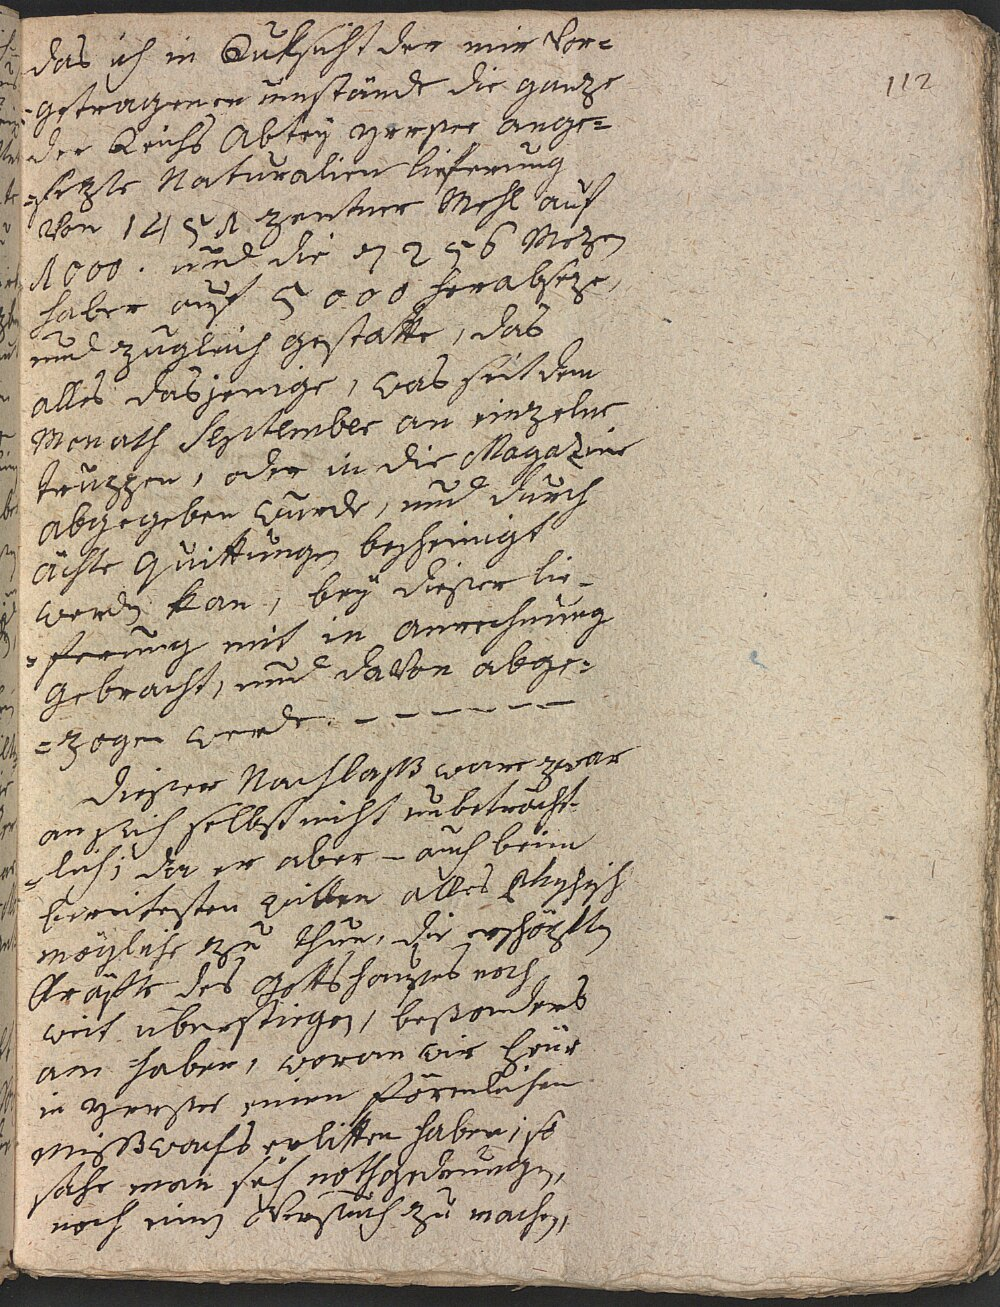 112
das ich in Ruksicht der mir vor=
=getragenen umstände die ganze
der Reichs Abtey yrrsee ange=
=sezte Naturalien lieferung
von 1451 zentner Mehl auf
1000. und die 7256 Mezen
haber auf 5000 herabseze,
und zugleich gestatte, das
alles dasjenige, was seit dem
Monath September an einzelne
truppen, oder in die Magazine
abgegeben wurde, und durch
ächte Quittungen bescheinigt
werden kan, bey dieser lie-
=ferung mit in anrechnung
gebracht, und davon abge=
=zogen werde. – – – – – –
Dieser Nachlaß ware zwar
an sich selbst nicht unbeträcht-
=lich; da er aber – auch beim
bereitesten willen alles physisch
mögliche zu thun, die erschöpften
kräfte des gottshauses noch
weit überstiegen, besonders
am haber, woran wir heür
in yrrsee einen förmlichen
mißwachs erlitten haben; so
sahe man sich nothgedrungen,
noch einen Versuch zu machen,